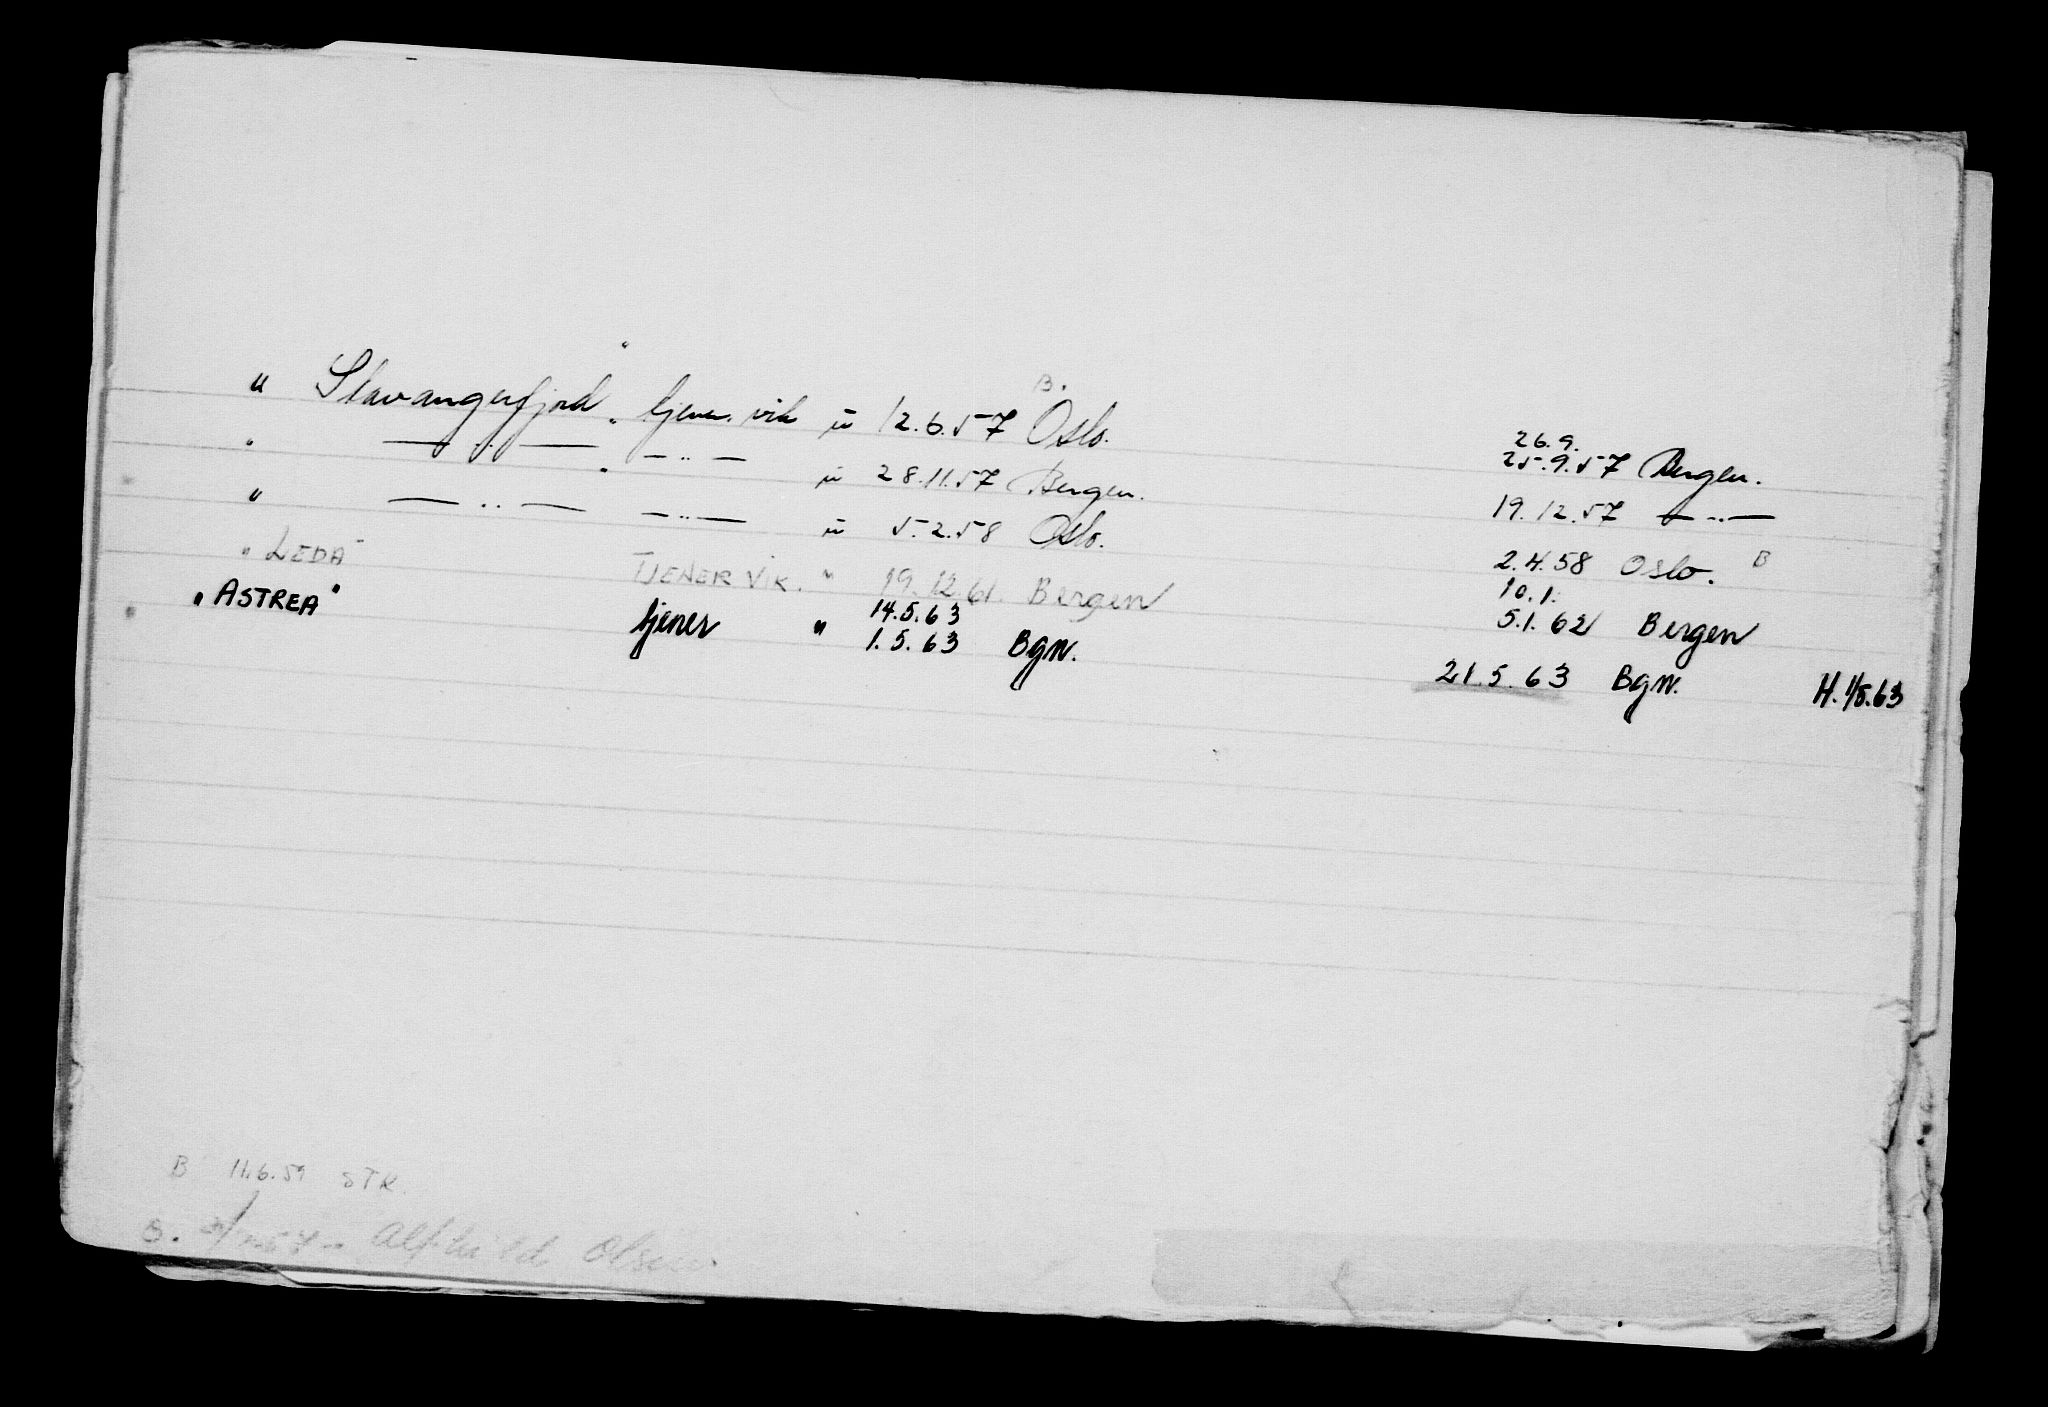 " Stavangerfjord" tjener. vik " 12.6.57 B. Oslo. 26.9. 25.9.57 Bergen.
" — " — " — " — " 28.11.57 Bergen. 19.12.57 — " —
" — " — — " — " 5.2.58 Oslo. 2.4.58 Oslo. B
" LEDA " TJENER VIK. " 19.12.61. Bergen 10.1. 5.1.62 Bergen
" ASTREA " tjener " 14.5.63 1.5.63 Bgn. 21.5.63 Bgn. H. 1/5.63
B 11.6.59 STR.
B. Alfhild Olsen.